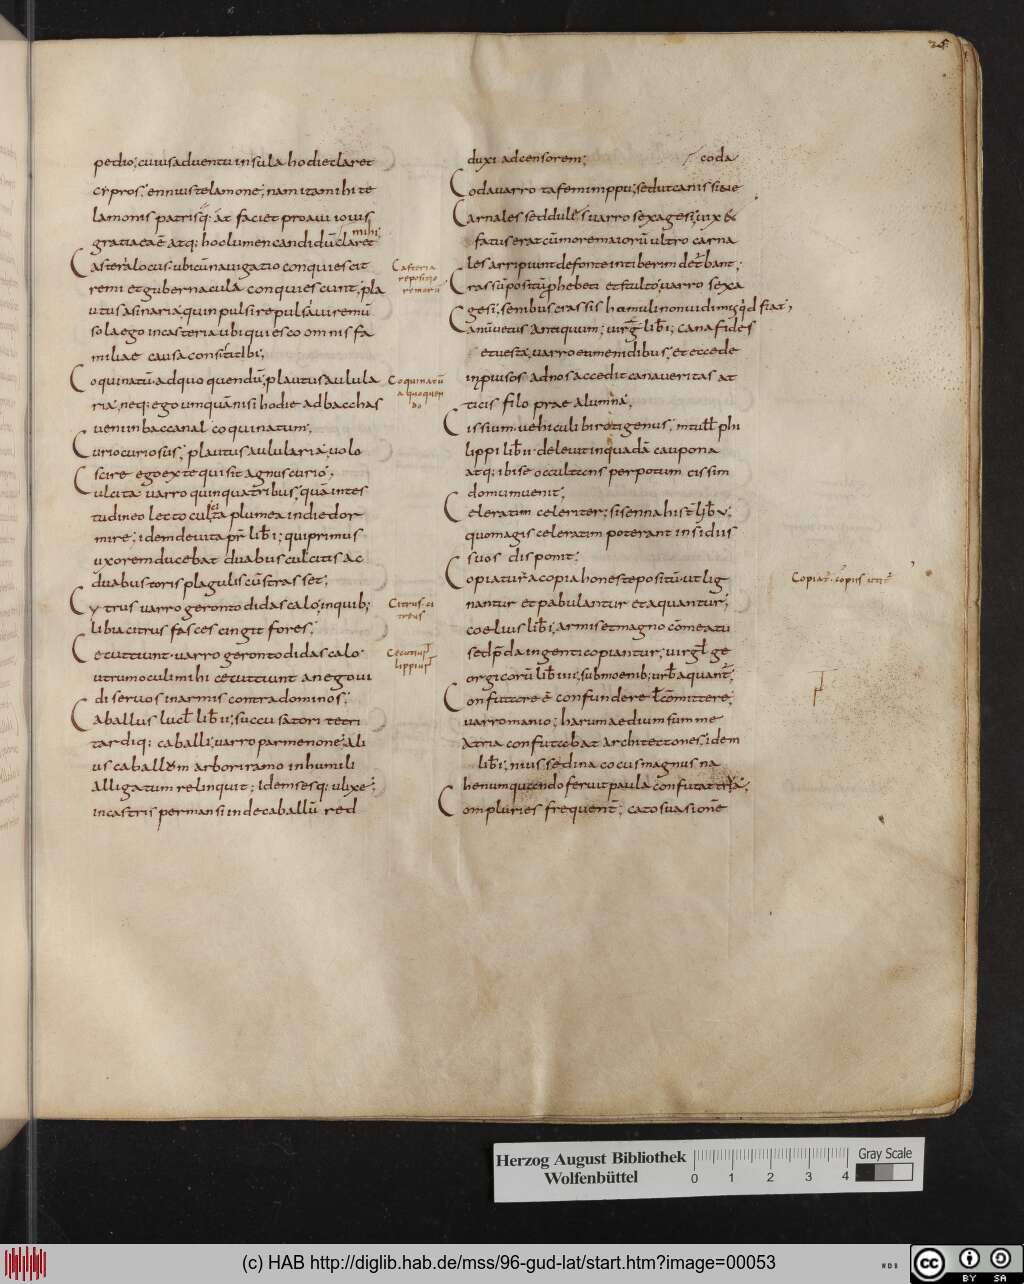 25
pedio; cuius adventu insula hodie claret
cypros; ennius telamone; nam ita mihi te
lamonis patris q: at faciet proavi iovis
mihi
gratia ea ē atq: hoc lumen candidū claret
Casteria locus. ubi cū navigatio conquiescit
remi et gubernacula conquiescunt; pla
utus asinaria; quin pulsi re pulsavi remū
sola ego in casteria ubi quiesco omnis fa
miliae causa consistit tibi;
Coquinatū. ad quo quendū; plautus aulula
ria; neq: ego umquā nisi hodie ad bacchas
veni in baccanal coquinatum;
Curio curiosus; plautus aulularia; volo
scire ego ex te qui sit agnus curio;
Culcita varro quinquatribus; quā in tes
tudineo lecto culcita plumea in die dor
mire; idem de vita pr̄ lib̄ i; qui primus
uxorem ducebat duabus culcitis ac
duabus toris plagulis cū strasset;
Cytrus varro gerontodidascalo; in quib;
libia citrus fasces cingit fores;
Cecuttiunt. varro gerontodidascalo.
utrum oculi mihi cecuttiunt an ego vi
di servos in armis contra dominos;
Caballus lucl̄ lib̄ ii; succusatori tetri
tardiq: caballi; varro parmenone; ali
us caballum arbori ramo in humili
alligatum relinquit; idem sesq: ulixe;
in castris permansi inde caballū red
Casteria
repositio
remorū
Coquinatū
a quoquen
do
Citrus ci
treus
Cecutiuṇt
lippiuṇt
duxi ad censorem; coda
Coda varro tafe menippu; sed ut canis sine
Carnales sed dulces varro sexagesi; vix &
fatus erat cū more maiorū ultro carna
les arripiunt de ponte in tiberim deturbant;
Crassū positū p hebeti et stulto; varro sexa
gesi; sensibus crassis homuli non vidimus quid fiat;
Canū vetus antiquum; virḡ lib̄ i; cana fides
et vesta; varro eumenidibus; et ecce de
inproviso ad nos accedit cana veritas at
ticis filo prae alumna;
Cissium. vehiculi biroti genus; m tull̄ phi
lippi lib̄ ii. delevit in quadā caupona
atq: ibi se occultans perpotum cissim
domum venit;
Celeratim celeriter; sisenna hist̄ lib̄ v;
quo magis celeratim poterant in sidiis
suos disponit;
Copiatur a copia honeste positū ut lig
nantur et pabulantur et aquantur;
coelius lib̄ i; armis et magno cōmeatu
sed p̄da ingenti copiantur; virgl̄ ge
orgicorū lib̄ iiii; sub moenib; urb aquant̄;
Confuttere ē confundere l̄ cōmittere;
varro manio; harum aedium summe
atria confuttebat architectones; idem
lib̄ i; nius; sed ina cocus magnus na
henum quando fervit paula confutat trua;
Compluries frequent̄; cato suasione
Copiat̄. copiis utit̄
Herzog August Bibliothek
Wolfenbüttel
0 1 2 3 4
Gray Scale
(c) HAB http://diglib.hab.de/mss/96-gud-lat/start.htm?image=00053
WDB
cc BY SA